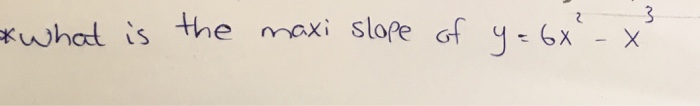 *what is the maxi slope of y = 6x² - x³